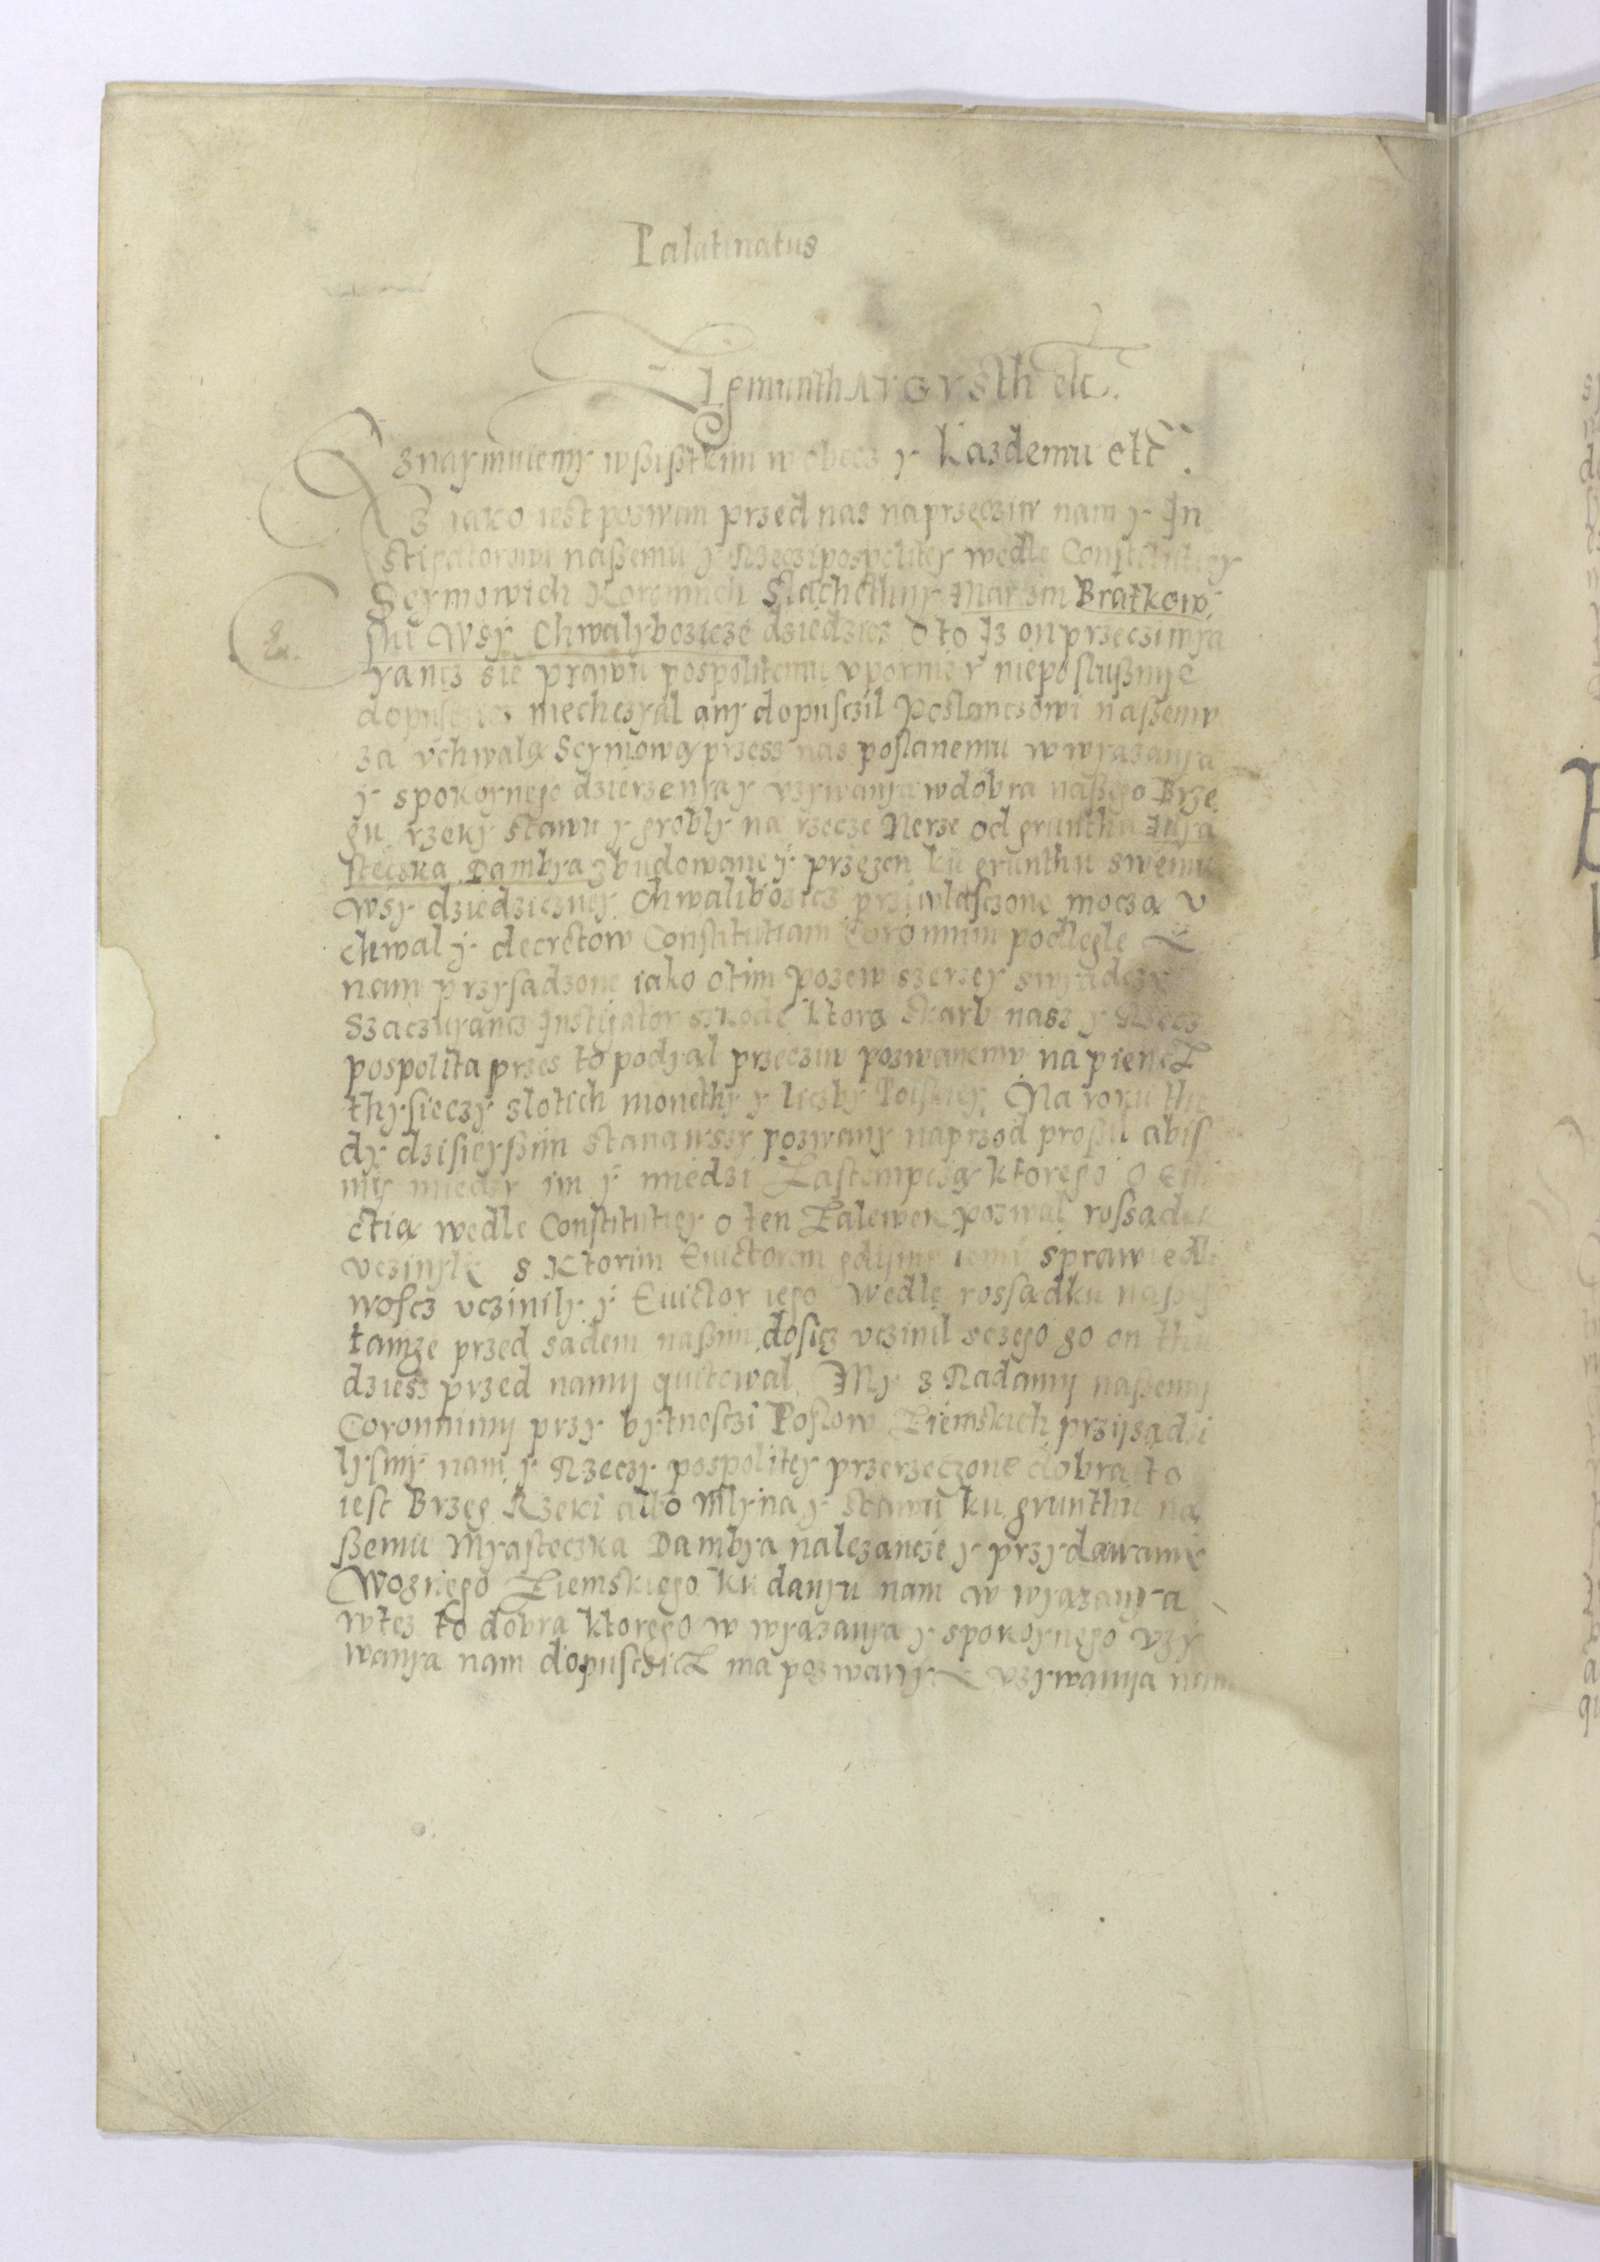 Palatinatus
Zigmunth AVGVSth etc.
Oznaymuiemy wßißtkim wobecz y kazdemu etc.
Iz iako iest pozwan przed nas naprzeczciw nam y In
stigatorowi naßemu y Rzeczipospolitey wedle Constitutiey
Seymowich Koronnich slachethny Marczin Bratkow
ski Wsy Chwalybozicze dziedzicz o to Iz on przeciwya
yancz sie prawu pospolitemu vpornie y nieposlußnye
dopusczicz niechczyal any dopusczil Poslanczowi naßemv
za vchwalą Seymową przesz nas poslanemu w wyazanya
y spokoynego dzierzenya y vzywanya w dobra naßego Brze
gu rzeky stawu y grobly na rzecze Nerze od grunthu Mya
steczka Dambya zbudowaney przezen ku grunthu swemu
Wsy dziedziczney Chwalibozicz przywlasczone moczą v
chwal y decretow Constitutiam Coronnim podlegle
nam przysadzone iako otim pozew szerzey swyadczy
Szaczuyancz Instigator szkode ktorą skarb nasz y Rzecz
pospolita przes to podyal przeczciw pozwanemv na piencz
thysieczy zlotich monethy y liczby Polskiey Na roku the
dy dzisieyßim stanawszy pozwany naprzod prosil abis
my miedzy im y miedzi Zastempczą ktorego o Evi
ctią wedle Constitutiey o ten Zalewek pozwal rossadek
vczinyli s ktorim Evictorem gdysmy iemv sprawiedli
woscz vczinily y Evictor iego wedle rossadku naßego
tamze przed sadem naßim dosicz vczinil sczego go on thu
dziesz przed namy quitowal. My z Radamy naßemy
Coronnimy przy bytnosczi Poslow Ziemskich przysądzi
lysmy nam y Rzeczy pospolitey przerzeczone dobra to
iest Brzeg Rzeki albo Mlyna y stawu ku grunthu na
ßemu Myasteczka Dambya nalezancze y przydawamy
Woznego Ziemskiego ku danyu nam w wyazanya
wtez to dobra ktorego w wyazanya y spokoynego vzy
wanya nam dopusczicz ma pozwany vzywanya nam